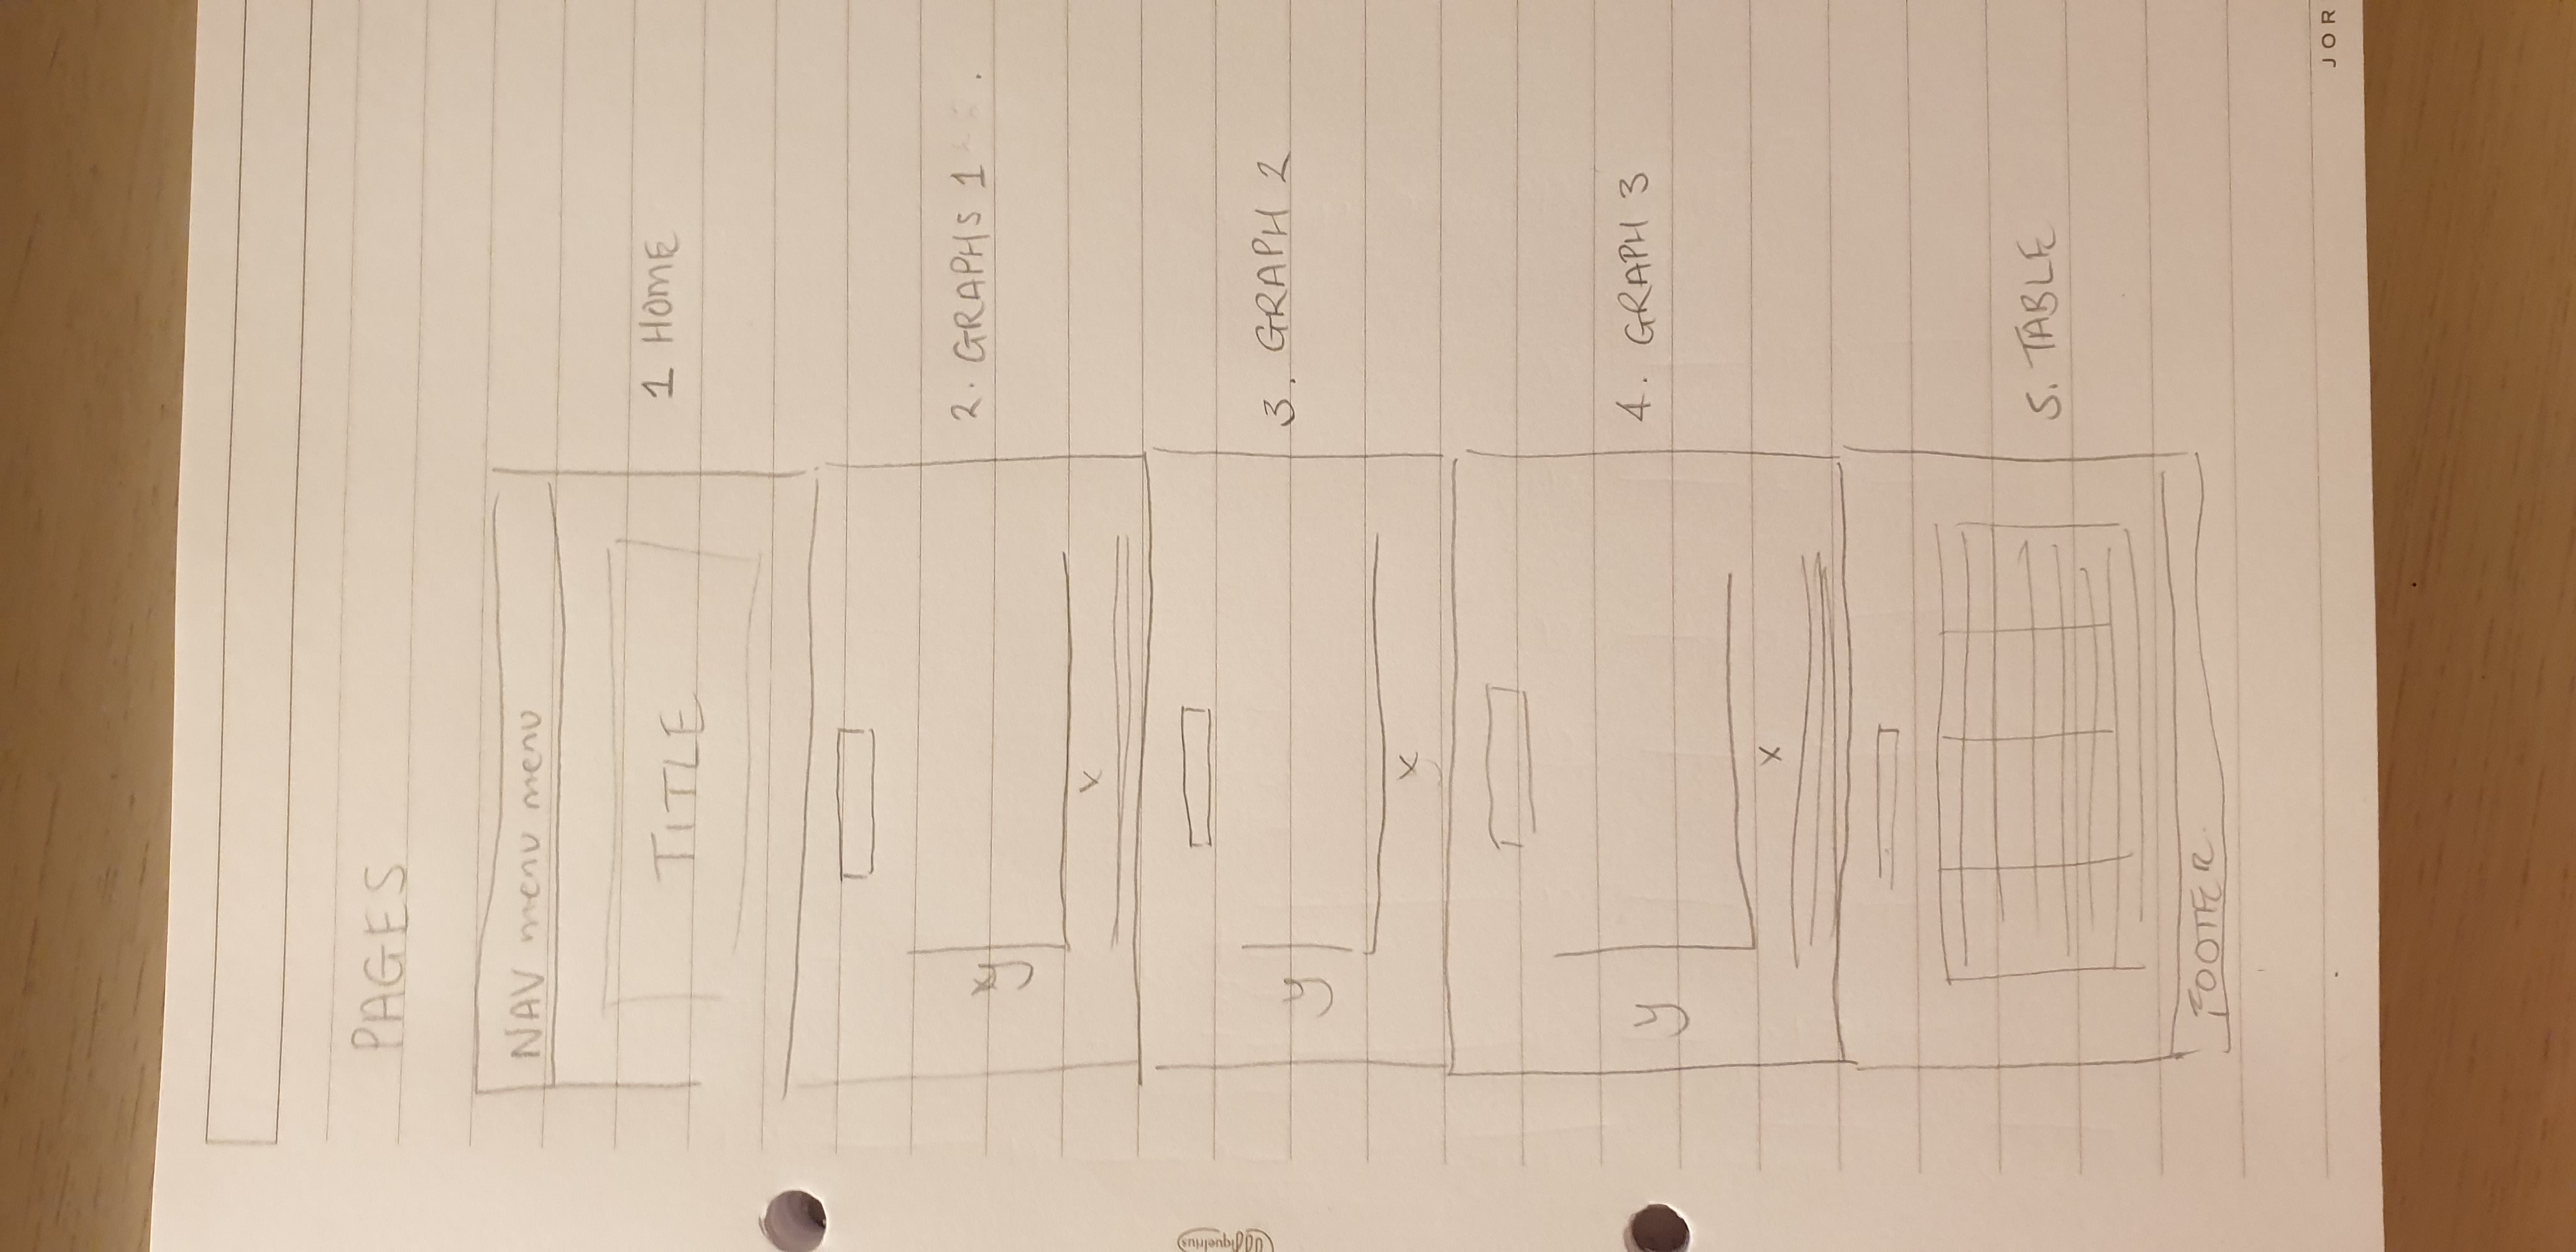 PAGES
NAV menu menu
TITLE
1 HOME
y
x
2. GRAPHS 1
y
x
3. GRAPH 2
y
x
4. GRAPH 3
5. TABLE
FOOTER
miquelrius
JOR